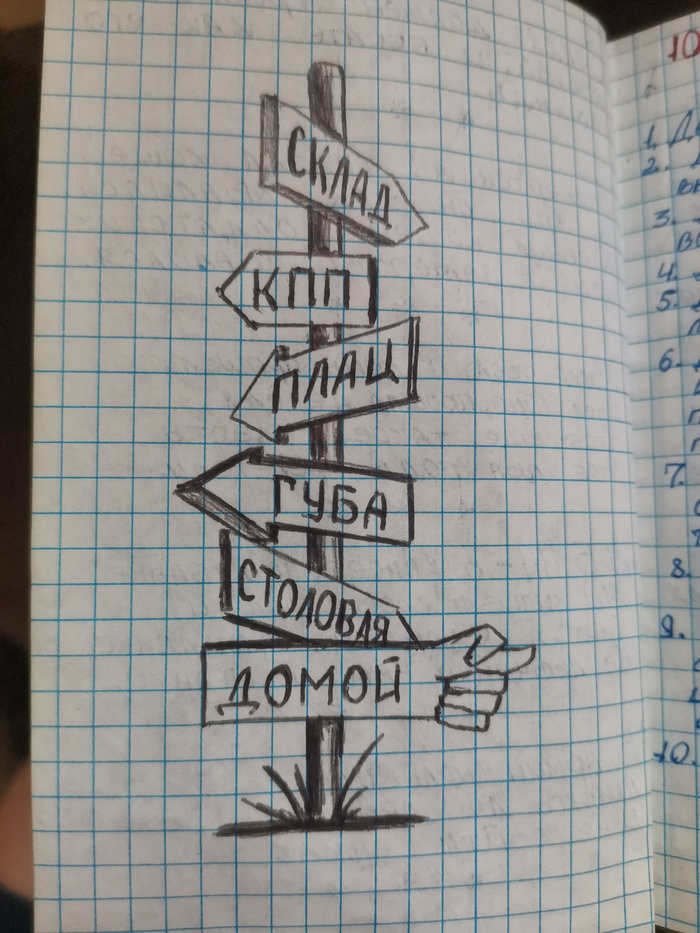 СКЛАД
КПП
ПЛАЦ
ГУБА
СТОЛОВАЯ
ДОМОЙ
10
1.
2.
3.
4.
5.
6.
7.
8.
9.
10.